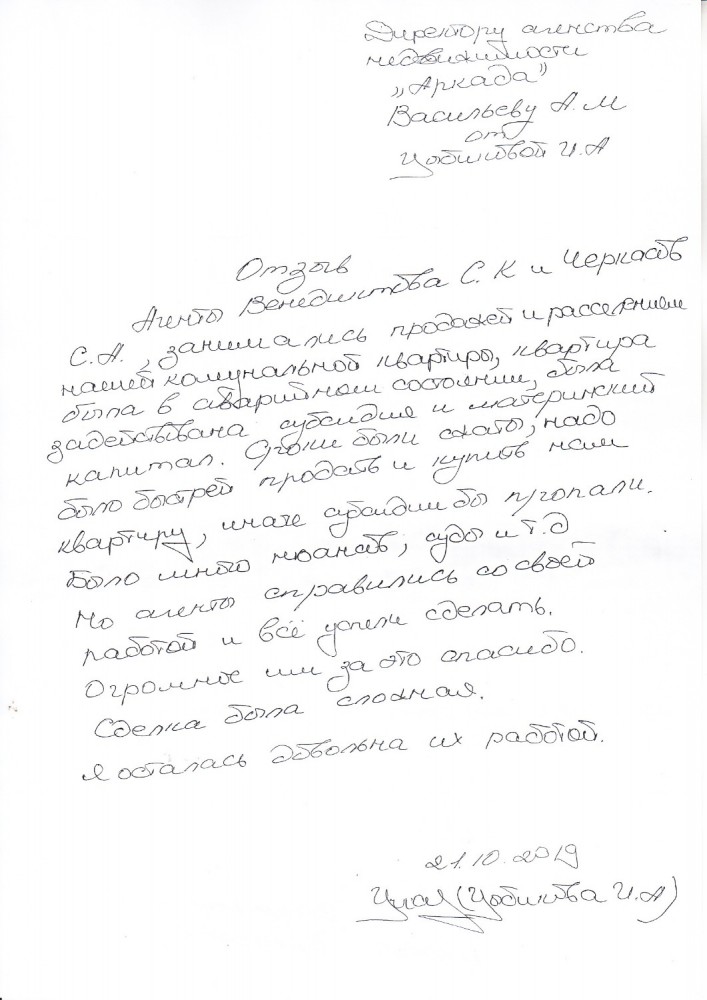 Директору агенства
недвижимости
„Аркада”
Васильеву А.М
от
И.А
Отзыв
Агенты Венедиктова С.К и Черкасов
С.А., занимались продажей и расселением
нашей комунальной квартиры, квартира
была в аварийном состоянии, была
задействована субсидия и материнский
капитал. Сроки были сжаты, надо
было быстрей продать и купить нам
квартиру, иначе субсидии бы пропали.
Было много нюансов, суды и т.д
Но агенты справились со своей
работой и всё успели сделать.
Огромное им за это спасибо.
Сделка была сложная.
Я осталась довольна их работой.
21.10.2019
И.А)